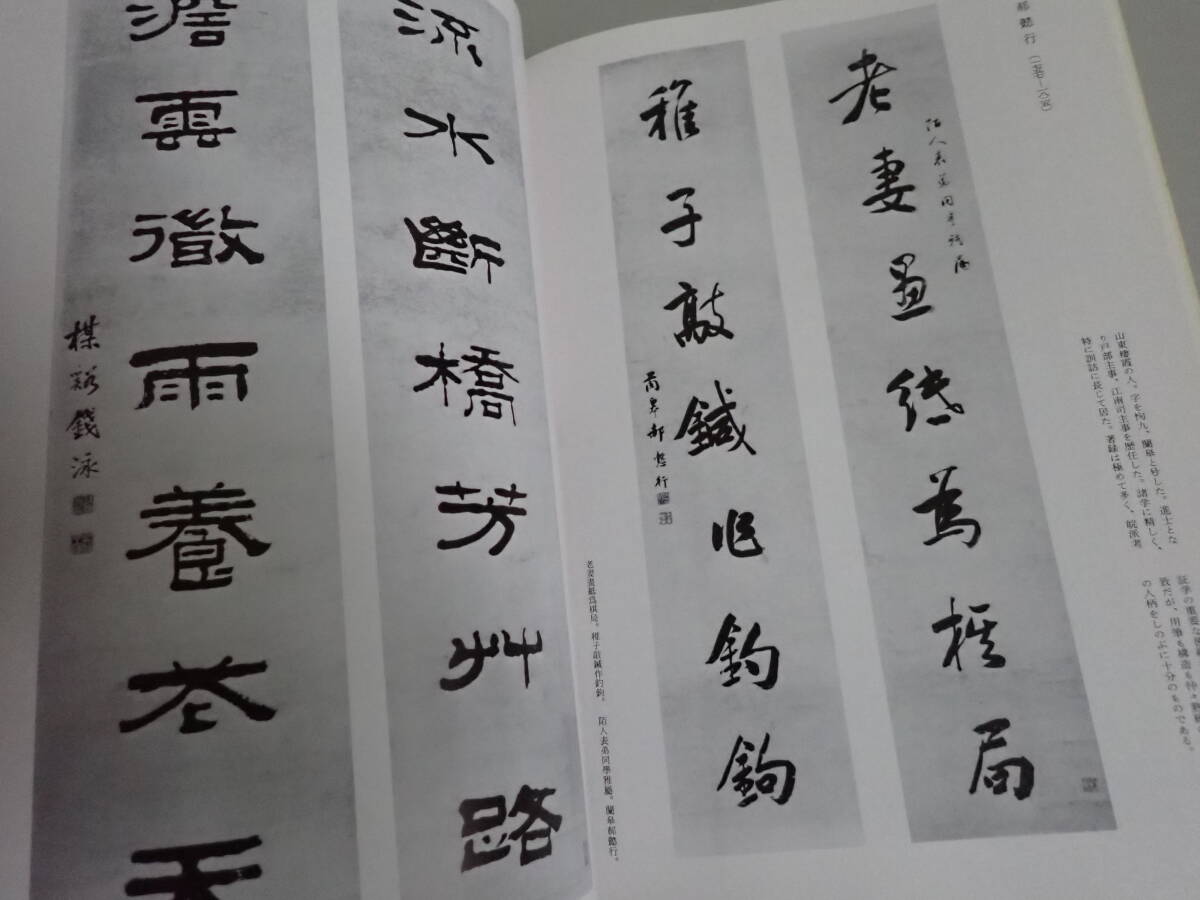 郝懿行
老妻畫紙為棋局
稚子敲鍼作釣鉤
蘭皋郝懿行
山東棲霞の人。字を恂九、蘭皋と号した。進士とな
り戸部主事、江南司主事を歴任した。諸学に精しく、
特に訓詁に長じて居た。著録は極めて多く、皖派考
証学の重要な
致だが、用筆も構造も仲々
の人柄をしのぶに十分のものである。
老妻畫紙爲棋局。稚子敲鍼作釣鉤。 陌人表弟同學雅屬。蘭皋郝懿行。
流水斷橋芳艸路
澹雲微雨養花天
楳谿錢泳